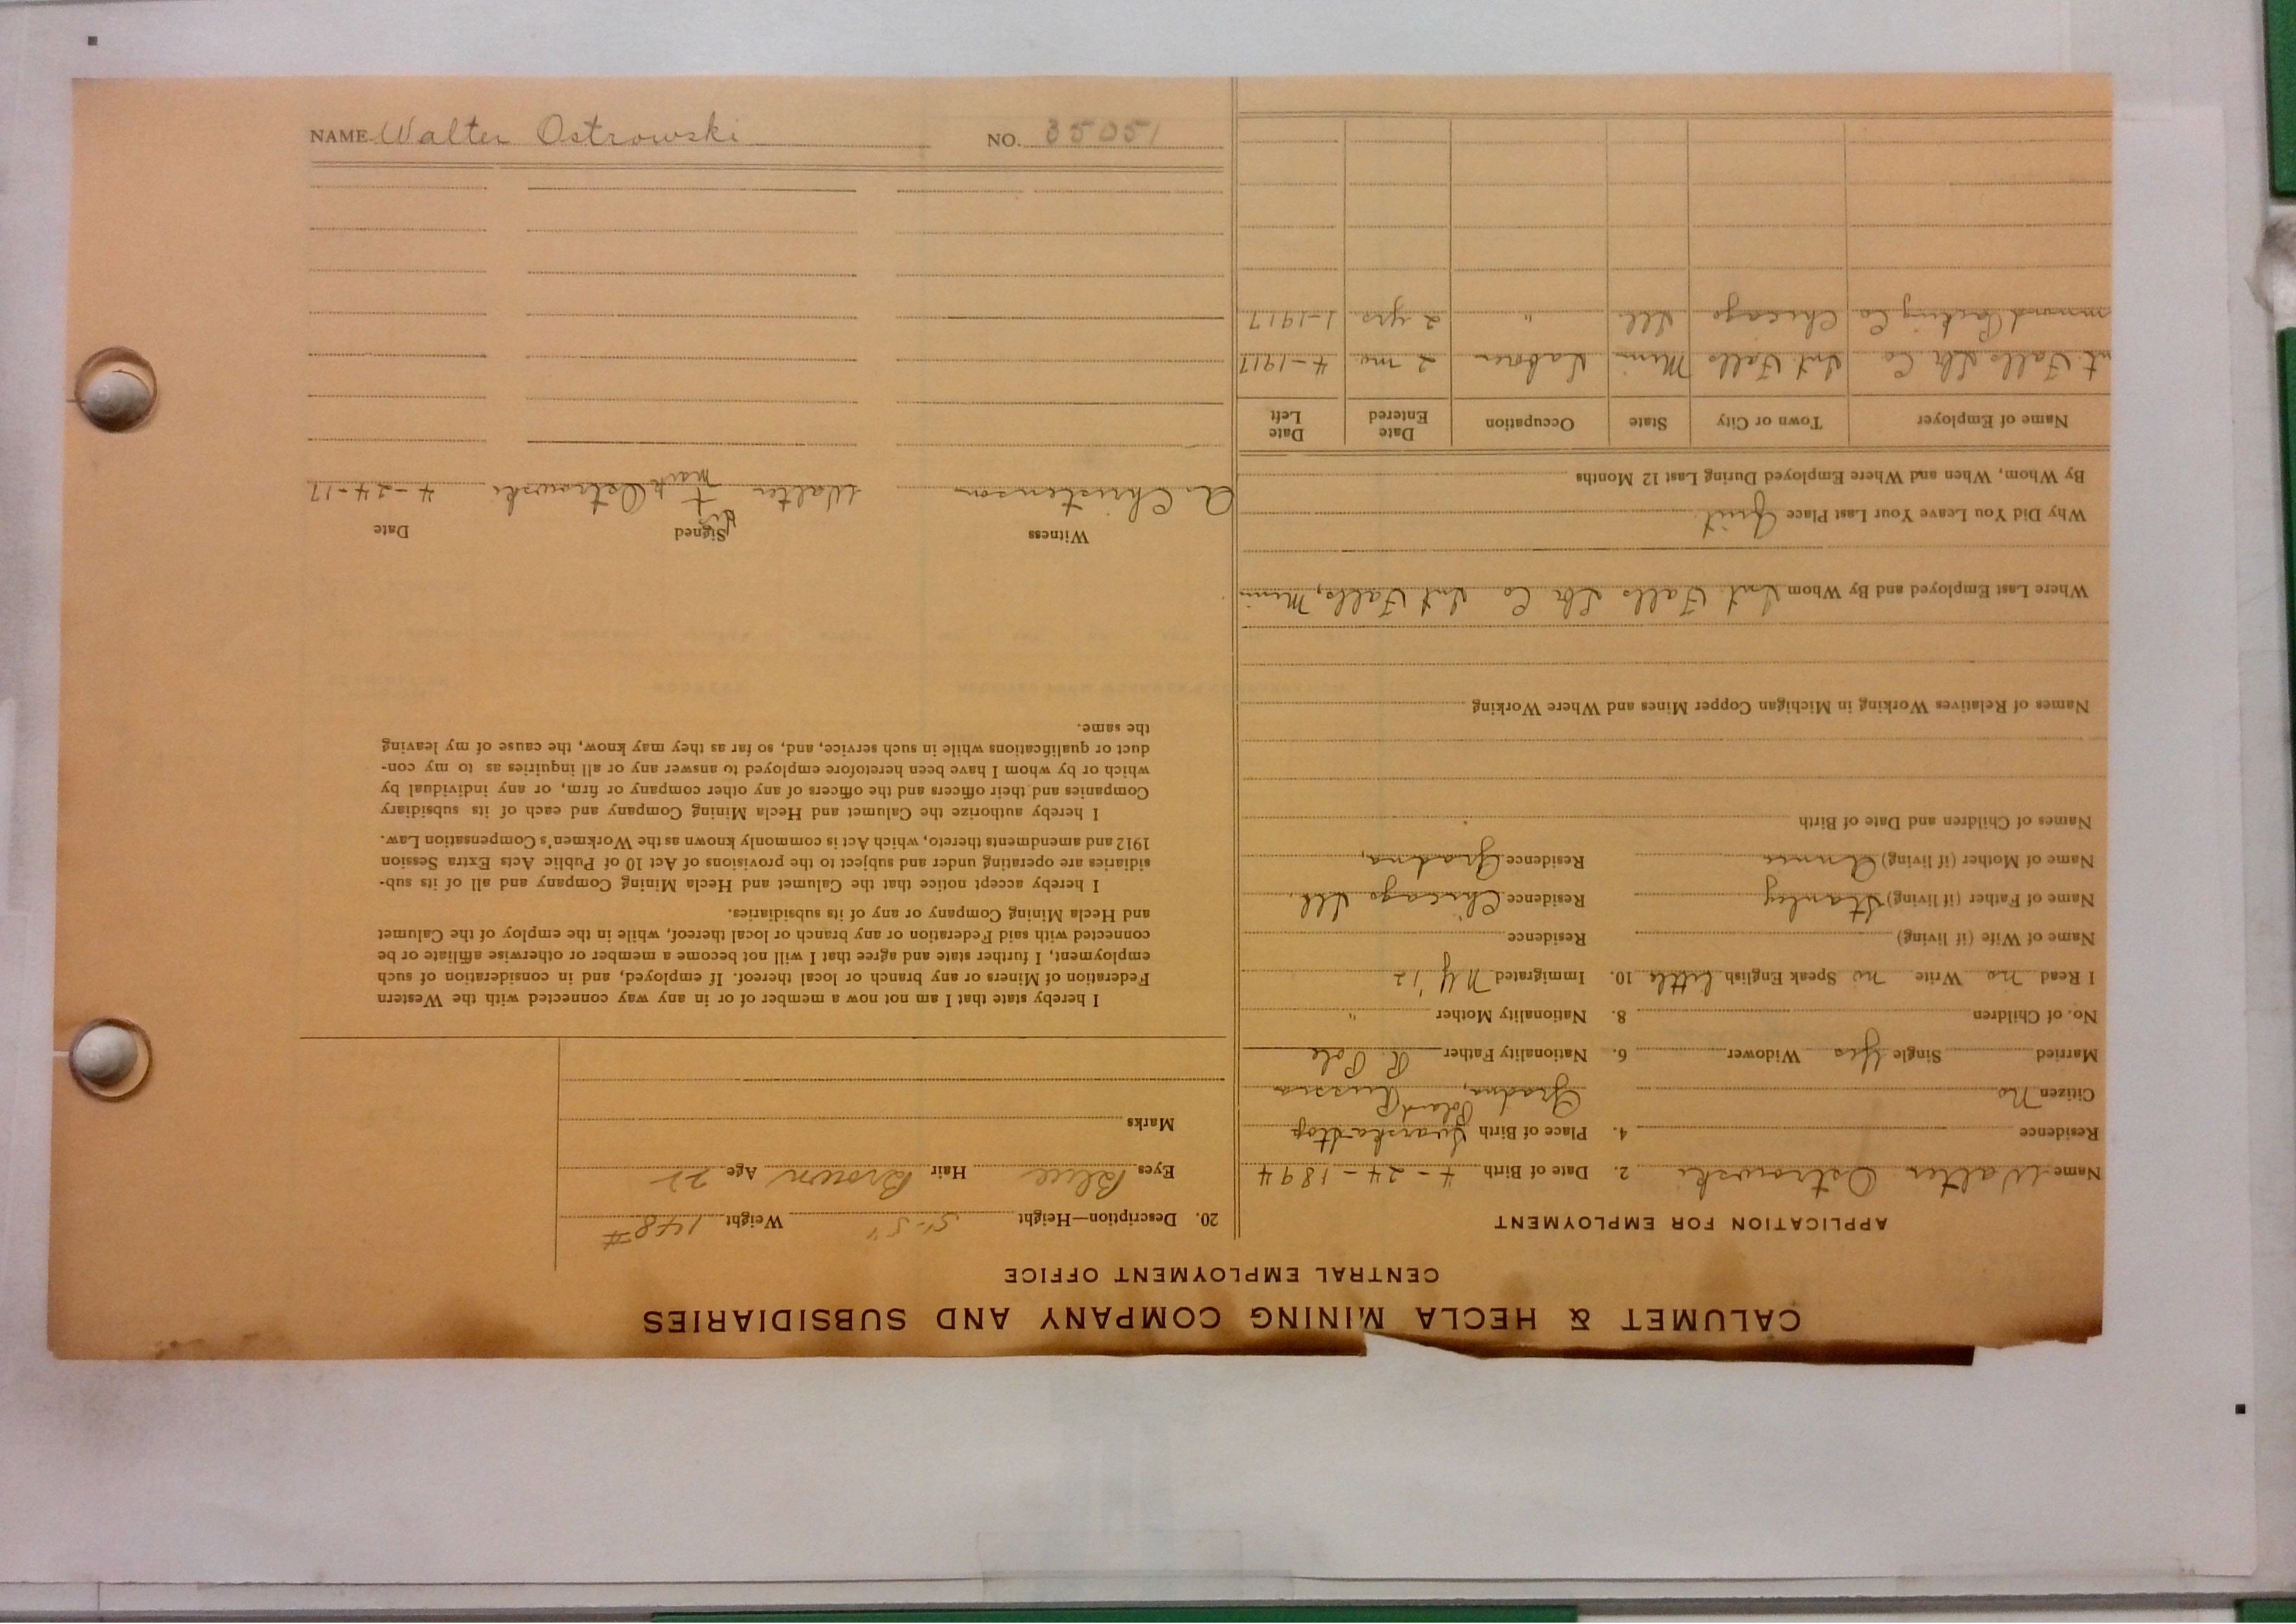 CALUMET & HECLA MINING COMPANY AND SUBSIDIARIES
CENTRAL EMPLOYMENT OFFICE
APPLICATION FOR EMPLOYMENT
Name Walter Ostrowski 2. Date of Birth 4-24-1894
Residence 4. Place of Birth
Poland
Citizen no Gradna, Russia
Married Single Yes Widower 6. Nationality Father R. Pole
No. of Children 8. Nationality Mother "
I Read no Write no Speak English little 10. Immigrated N.Y. '12
Name of Wife (if living) Residence
Name of Father (if living) Stanley Residence Chicago Ill.
Name of Mother (if living) Annie Residence Gradna,
Names of Children and Date of Birth
Names of Relatives Working in Michigan Copper Mines and Where Working
Where Last Employed and By Whom Int Falls Lbr Co Int Falls, Minn
Why Did You Leave Your Last Place Quit
By Whom, When and Where Employed During Last 12 Months
Name of Employer Town or City State Occupation Date Entered Date Left
t Falls Lbr Co Int Falls Minn Laborer 2 mo 4-1917
mond Packing Co Chicago Ill. " 2 yrs 1-1917
20. Description—Height 5'-5" Weight 148#
Eyes Blue Hair Brown Age 22
Marks
I hereby state that I am not now a member of or in any way connected with the Western
Federation of Miners or any branch or local thereof. If employed, and in consideration of such
employment, I further state and agree that I will not become a member or otherwise affiliate or be
connected with said Federation or any branch or local thereof, while in the employ of the Calumet
and Hecla Mining Company or any of its subsidiaries.
I hereby accept notice that the Calumet and Hecla Mining Company and all of its sub-
sidiaries are operating under and subject to the provisions of Act 10 of Public Acts Extra Session
1912 and amendments thereto, which Act is commonly known as the Workmen's Compensation Law.
I hereby authorize the Calumet and Hecla Mining Company and each of its subsidiary
Companies and their officers and the officers of any other company or firm, or any individual by
which or by whom I have been heretofore employed to answer any or all inquiries as to my con-
duct or qualifications while in such service, and, so far as they may know, the cause of my leaving
the same.
Witness Signed Date
his
A. Christenson Walter + Ostrowski 4-24-17
mark
NAME Walter Ostrowski NO. 35051